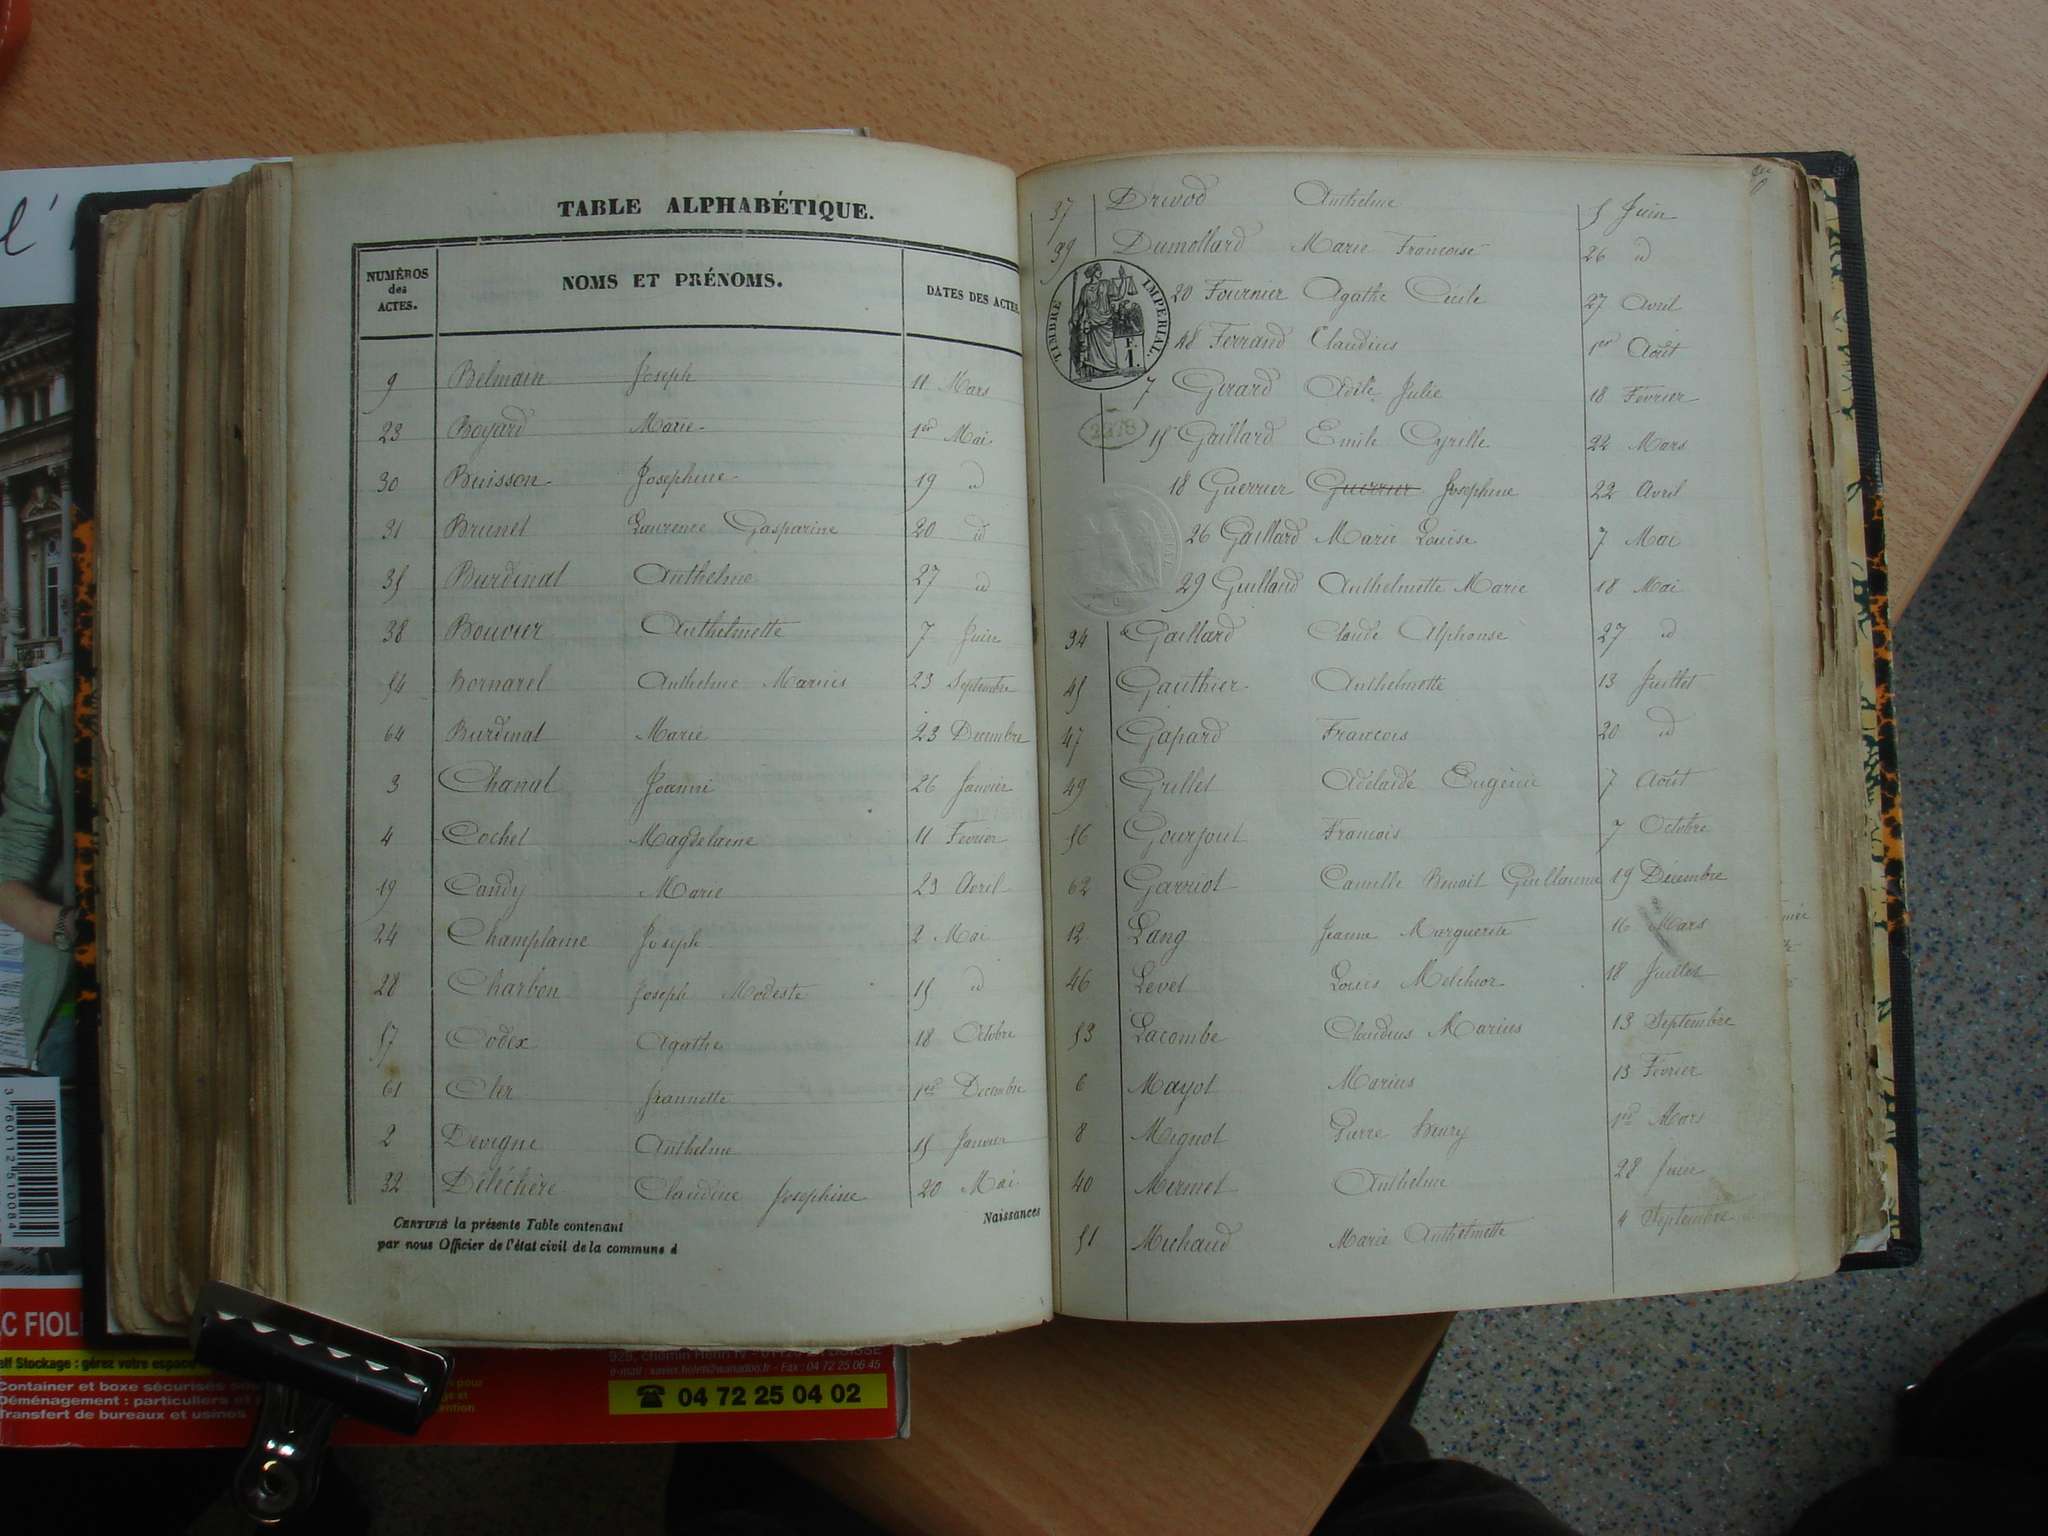 TABLE ALPHABÉTIQUE.
NUMÉROS des ACTES.
NOMS ET PRÉNOMS.
DATES DES ACTES.
9 Belmain Joseph 11 Mars
23 Boyard Marie 1er Mai
30 Buisson Josephine 19 id
31 Brunet Laurence Gasparine 20 id
35 Burdinat Anthelme 27 id
38 Bouvier Anthelmette 7 Juin
54 Bornarel Anthelme Marius 23 Septembre
64 Burdinat Marie 23 Decembre
3 Chanal Joanni 26 Janvier
4 Cochet Magdelaine 11 Fevrier
19 Candy Marie 23 Avril
24 Champlaine Joseph 2 Mai
28 Charbon Joseph Modeste 15 id
57 Codex Agathe 18 Octobre
61 Cler Jeannette 1er Decembre
2 Devigne Anthelme 15 Janvier
32 Déléchère Claudine Josephine 20 Mai
CERTIFIÉ la présente Table contenant Naissances
par nous Officier de l'état civil de la commune d
37 Drivod Anthelme 5 Juin
39 Dumollard Marie Francoise 26 id
TIMBRE IMPERIAL.
F. 1.
20 Fournier Agathe Cécile 27 Avril
48 Ferrand Claudius 1er Août
7 Girard Adèle Julie 18 Fevrier
15 Gaillard Emile Cyrille 24 Mars
18 Guerrier Guerrier Josephine 22 Avril
26 Gaillard Marie Louise 7 Mai
29 Guilland Anthelmette Marie 18 Mai
34 Gaillard Claude Alphonse 27 id
45 Gauthier Anthelmette 13 Juillet
47 Gapard Francois 20 id
49 Grillet Adélaïde Eugénie 7 Août
56 Gourjout Francois 7 Octobre
62 Garriot Camille Benoit Guillaume 19 Décembre
12 Lang Jeanne Marguerite 16 Mars
46 Levet Louis Melchior 18 Juillet
53 Lacombe Claudius Marius 13 Septembre
6 Mayot Marius 13 Fevrier
8 Mignot Pierre henry 1er Mars
40 Mermet Anthelme 28 Juin
51 Michaud Marie Anthelmette 4 Septembre
3 760112 510084
C FIOL
elf Stockage : gérez votre espace
Container et boxe sécurisés
Déménagement : particuliers et
Transfert de bureaux et usines
929, chemin Henri IV
Fax : 04 72 25 06 45
04 72 25 04 02